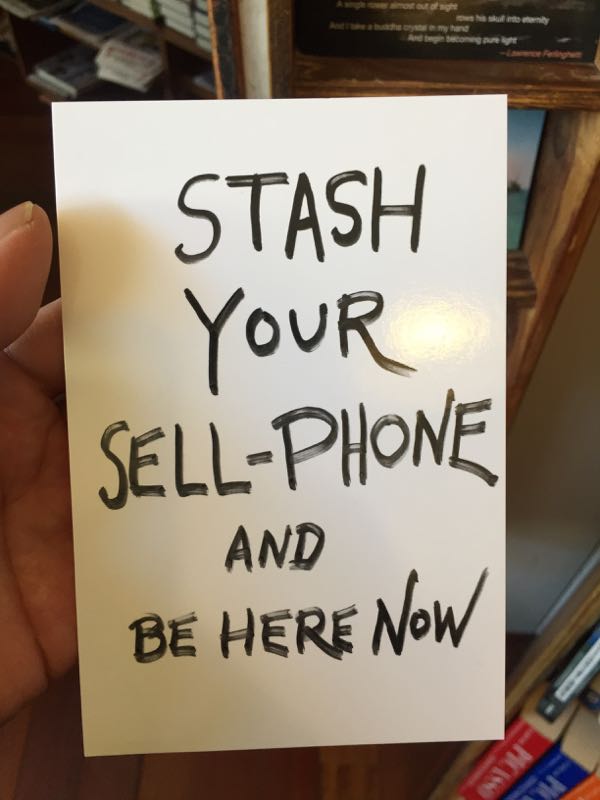 A single rower almost out of sight
rows his skull into eternity
And I take a buddha crystal in my hand
And begin becoming pure light
—Lawrence Ferlinghetti
STASH
YOUR
SELL-PHONE
AND
BE HERE NOW
PICASSO